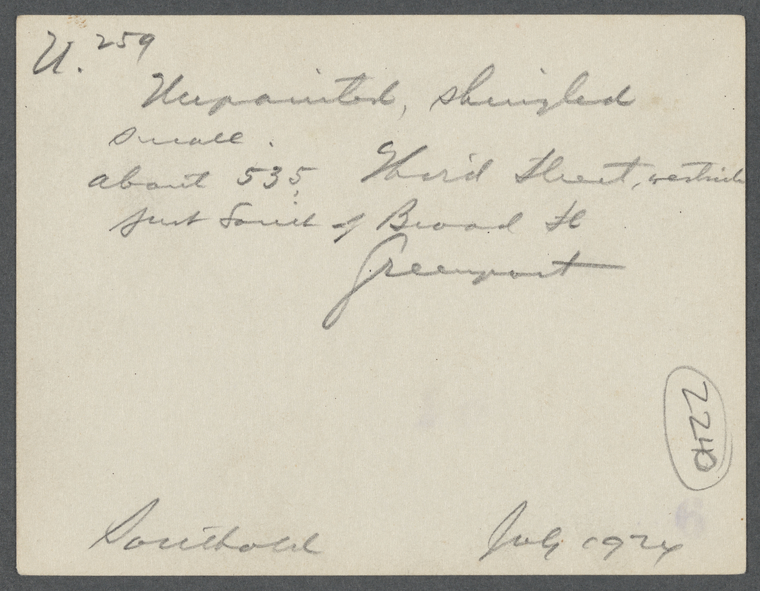 U. 259
Unpainted, shingled
small.
about 535, Third Street, westside
just South of Broad St
Greenport
2240
Southold July 1924